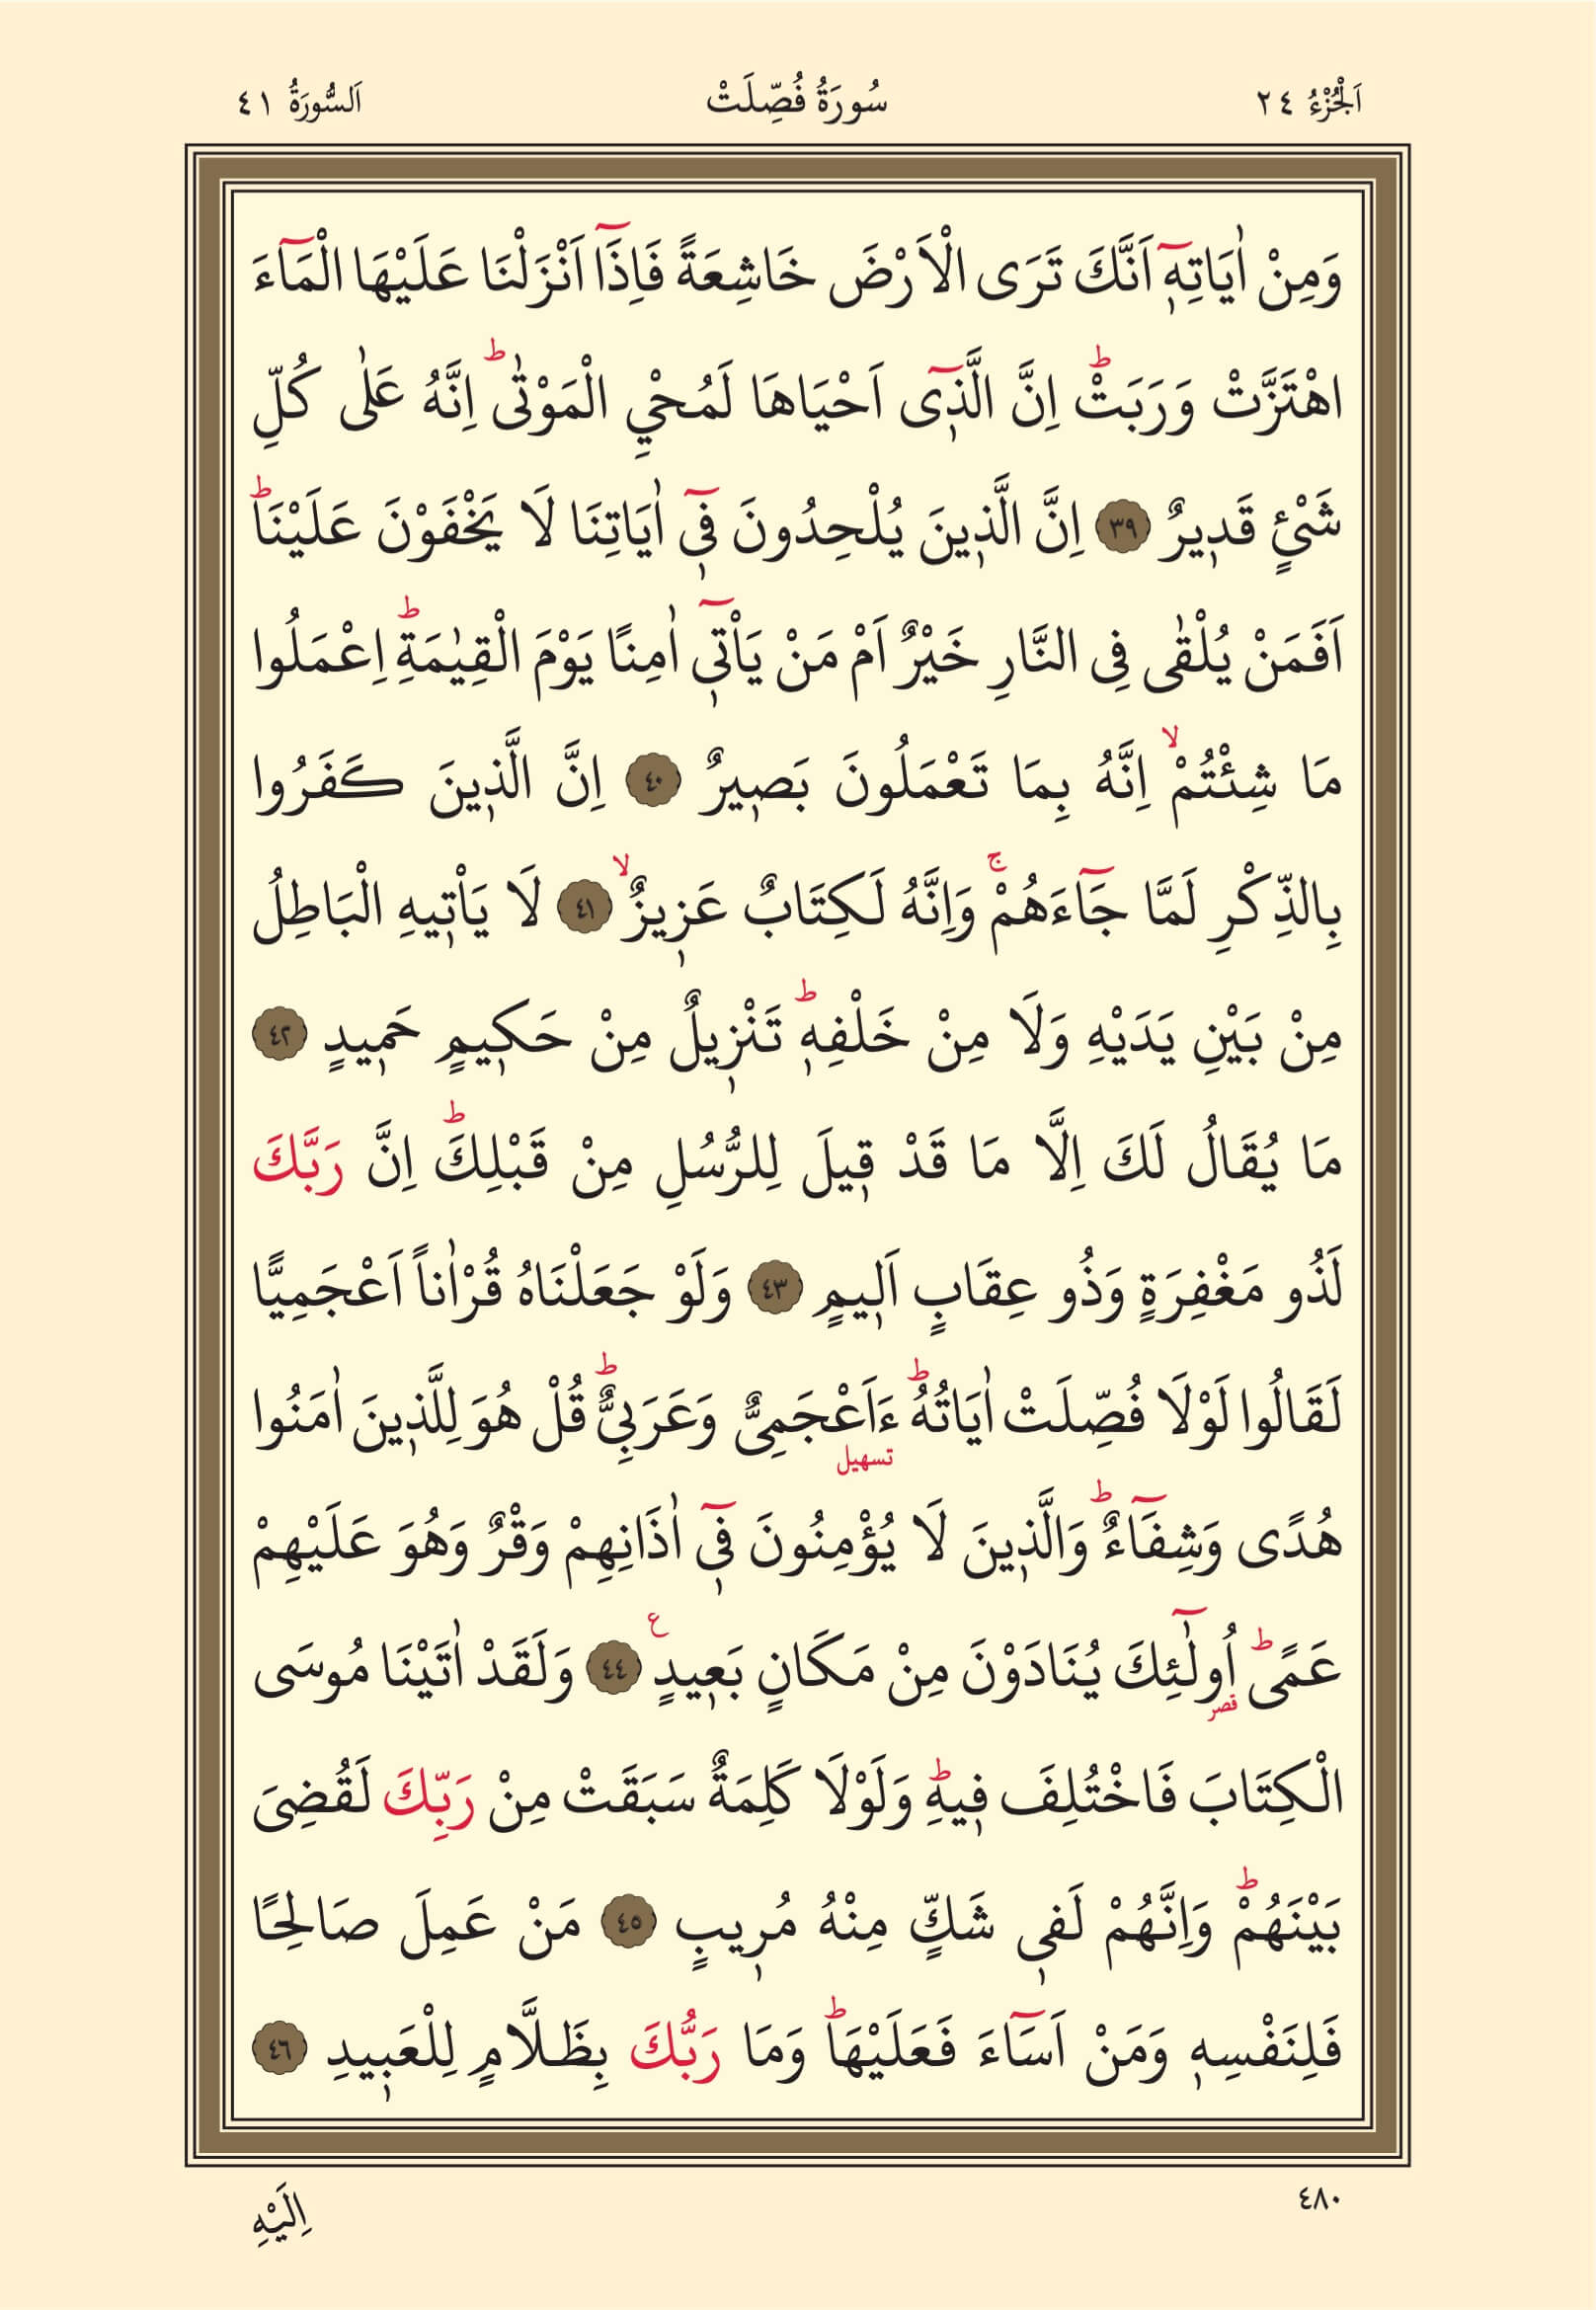 اَلْجُزْءُ ٢٤
سُورَةُ فُصِّلَتْ
اَلسُّورَةُ ٤١
وَمِنْ اٰيَاتِه۪ٓ اَنَّكَ تَرَى الْاَرْضَ خَاشِعَةً فَاِذَٓا اَنْزَلْنَا عَلَيْهَا الْمَٓاءَ
اهْتَزَّتْ وَرَبَتْۜ اِنَّ الَّذ۪ٓي اَحْيَاهَا لَمُحْيِ الْمَوْتٰىۜ اِنَّهُ عَلٰى كُلِّ
شَيْءٍ قَد۪يرٌ ٣٩ اِنَّ الَّذ۪ينَ يُلْحِدُونَ ف۪ٓي اٰيَاتِنَا لَا يَخْفَوْنَ عَلَيْنَاۜ
اَفَمَنْ يُلْقٰى فِي النَّارِ خَيْرٌ اَمْ مَنْ يَأْت۪ٓي اٰمِنًا يَوْمَ الْقِيٰمَةِۜ اِعْمَلُوا
مَا شِئْتُمْۙ اِنَّهُ بِمَا تَعْمَلُونَ بَص۪يرٌ ٤٠ اِنَّ الَّذ۪ينَ كَفَرُوا
بِالذِّكْرِ لَمَّا جَٓاءَهُمْۚ وَاِنَّهُ لَكِتَابٌ عَز۪يزٌۙ ٤١ لَا يَأْت۪يهِ الْبَاطِلُ
مِنْ بَيْنِ يَدَيْهِ وَلَا مِنْ خَلْفِه۪ۜ تَنْز۪يلٌ مِنْ حَك۪يمٍ حَم۪يدٍ ٤٢
مَا يُقَالُ لَكَ اِلَّا مَا قَدْ ق۪يلَ لِلرُّسُلِ مِنْ قَبْلِكَۜ اِنَّ رَبَّكَ
لَذُو مَغْفِرَةٍ وَذُو عِقَابٍ اَل۪يمٍ ٤٣ وَلَوْ جَعَلْنَاهُ قُرْاٰناً اَعْجَمِيًّا
لَقَالُوا لَوْلَا فُصِّلَتْ اٰيَاتُهُۜ ءَاَعْجَمِيٌّ وَعَرَبِيٌّۜ قُلْ هُوَ لِلَّذ۪ينَ اٰمَنُوا
تسهيل
هُدًى وَشِفَٓاءٌۜ وَالَّذ۪ينَ لَا يُؤْمِنُونَ ف۪ٓي اٰذَانِهِمْ وَقْرٌ وَهُوَ عَلَيْهِمْ
عَمًىۜ اُولٰٓئِكَ يُنَادَوْنَ مِنْ مَكَانٍ بَع۪يدٍ ع ٤٤ وَلَقَدْ اٰتَيْنَا مُوسَى
قصر
الْكِتَابَ فَاخْتُلِفَ ف۪يهِۜ وَلَوْلَا كَلِمَةٌ سَبَقَتْ مِنْ رَبِّكَ لَقُضِيَ
بَيْنَهُمْۜ وَاِنَّهُمْ لَف۪ي شَكٍّ مِنْهُ مُر۪يبٍ ٤٥ مَنْ عَمِلَ صَالِحًا
فَلِنَفْسِه۪ وَمَنْ اَسَٓاءَ فَعَلَيْهَاۜ وَمَا رَبُّكَ بِظَلَّامٍ لِلْعَب۪يدِ ٤٦
٤٨٠
اِلَيْهِ